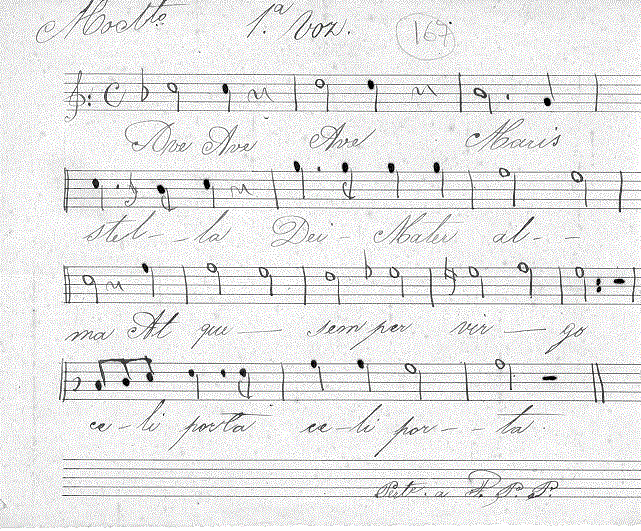 Modtto 1.ª Voz. 167
Ave Ave Ave Maris
stel - - la Dei - Mater al - -
ma At que — semper vir — go
ce - li porta ce - li por - - ta.
Perte. a P. P. P.